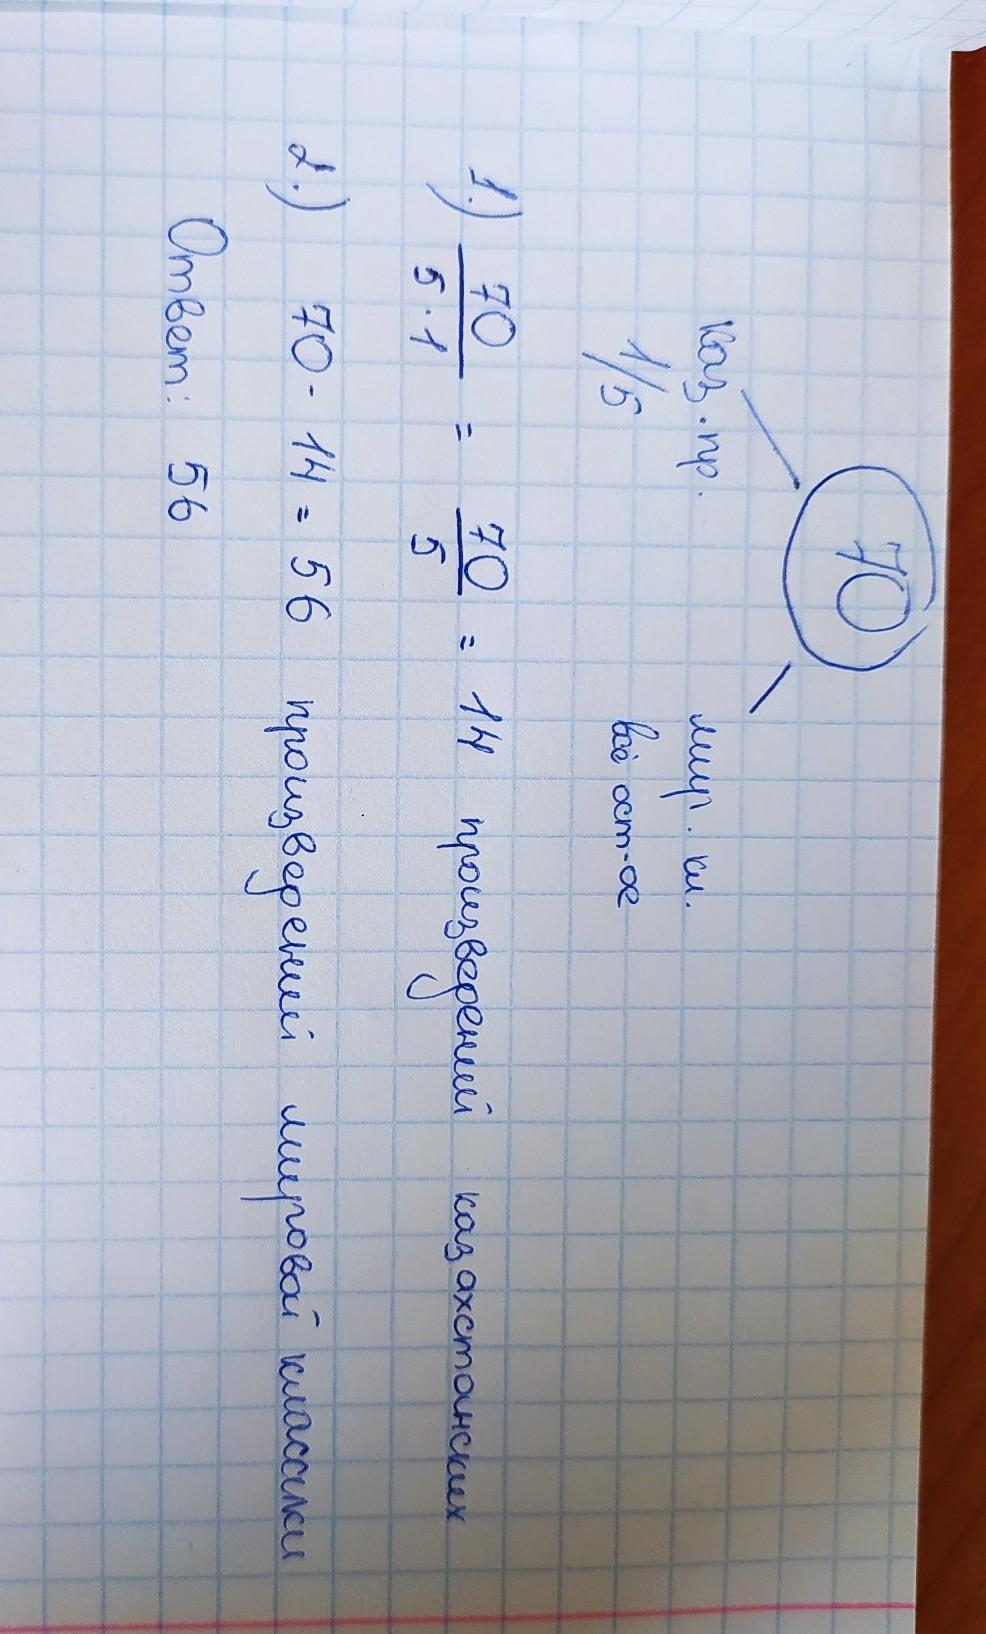 70
каз. пр. мир. кл.
1/5 всё ост-ое
1.) 70/5·1 = 70/5 = 14 произведений казахстанских
2.) 70 - 14 = 56 произведений мировой классики
Ответ: 56